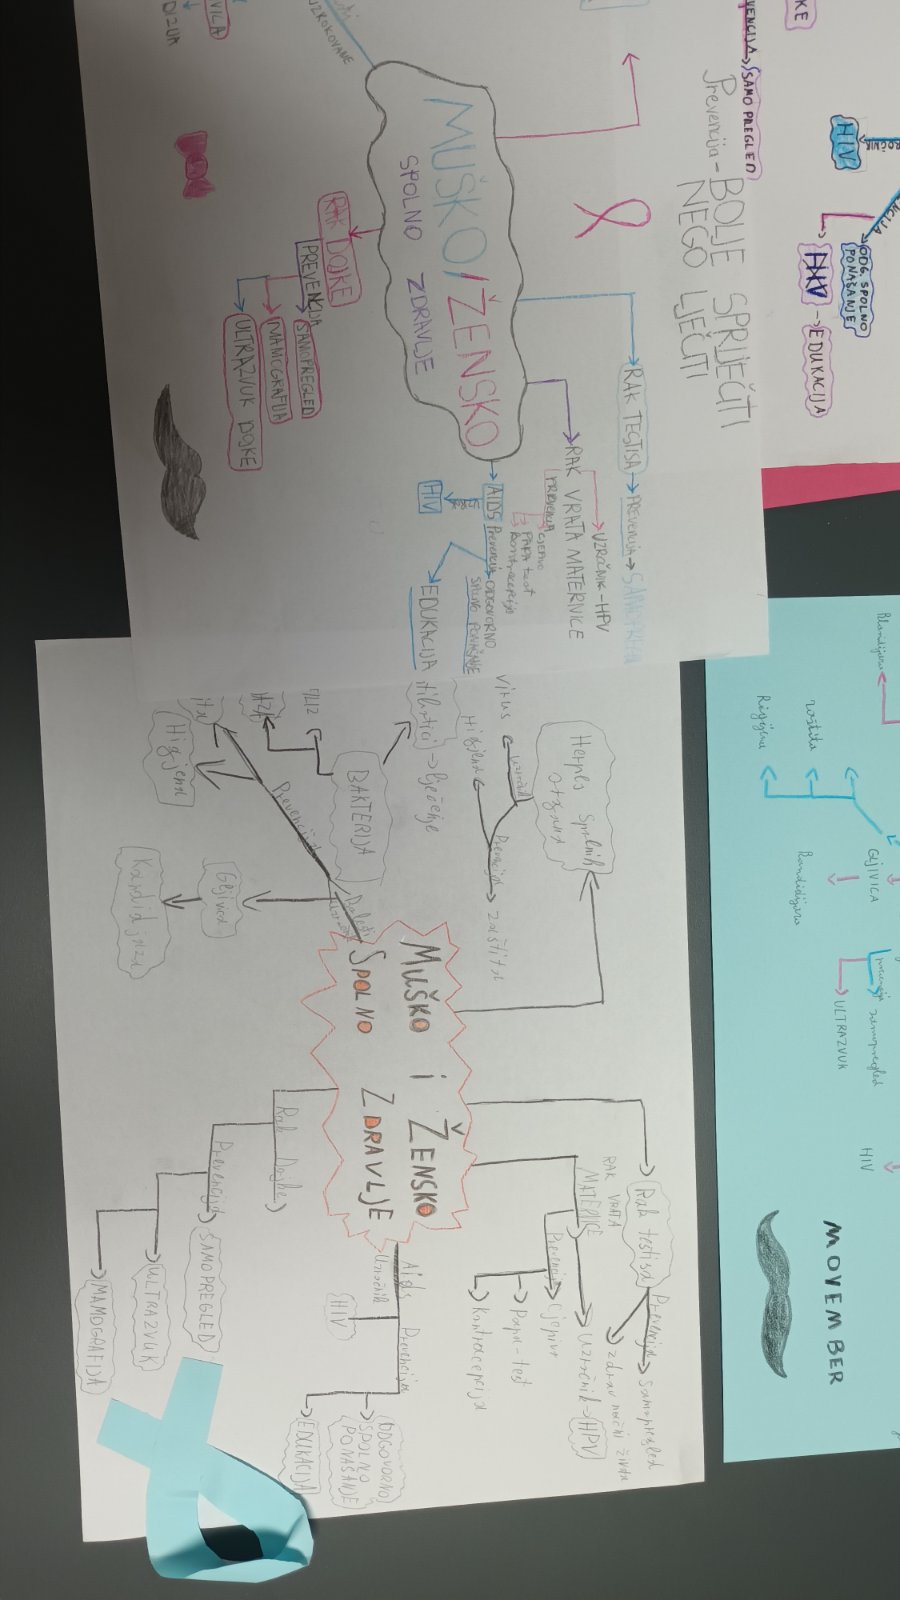 MUŠKO/ŽENSKO
SPOLNO ZDRAVLJE
Prevencija - BOLJE SPRIJEČITI
NEGO LIJEČITI
RAK TESTISA → PREVENCIJA → SAMOPREGLED
RAK VRATA MATERNICE
UZROČNIK - HPV
PREVENCIJA
CJEPIVO
PAPA test
kontracepcija
AIDS
HIV
Prevencija
ODGOVORNO
SPOLNO PONAŠANJE
EDUKACIJA
RAK DOJKE
PREVENCIJA
SAMOPREGLED
MAMOGRAFIJA
ULTRAZVUK DOJKE
UZROKOVANE
SAMO PREGLED
HIV
ODG. SPOLNO
PONAŠANJE
EDUKACIJA
MUŠKO i ŽENSKO
SPOLNO ZDRAVLJE
Herpes Spolnih
organa
virus
Prevencija
Higijena
zaštita
BAKTERIJA
liječenje
Prevencija
Higijena
Gljivica
Kandidijaza
Rak testisa
Prevencija
samopregled
zdrav način života
RAK VRATA
MATERNICE
Uzročnik → HPV
Prevencija
Cjepivo
Papa-test
Kontracepcija
Aids
Uzročnik
HIV
Prevencija
ODGOVORNO
SPOLNO
PONAŠANJE
EDUKACIJA
Rak Dojke
Prevencija
SAMOPREGLED
ULTRAZVUK
MAMOGRAFIJA
zaštita
Higijena
GLJIVICA
Kandidijaza
samopregled
ULTRAZVUK
HIV
MOVEMBER